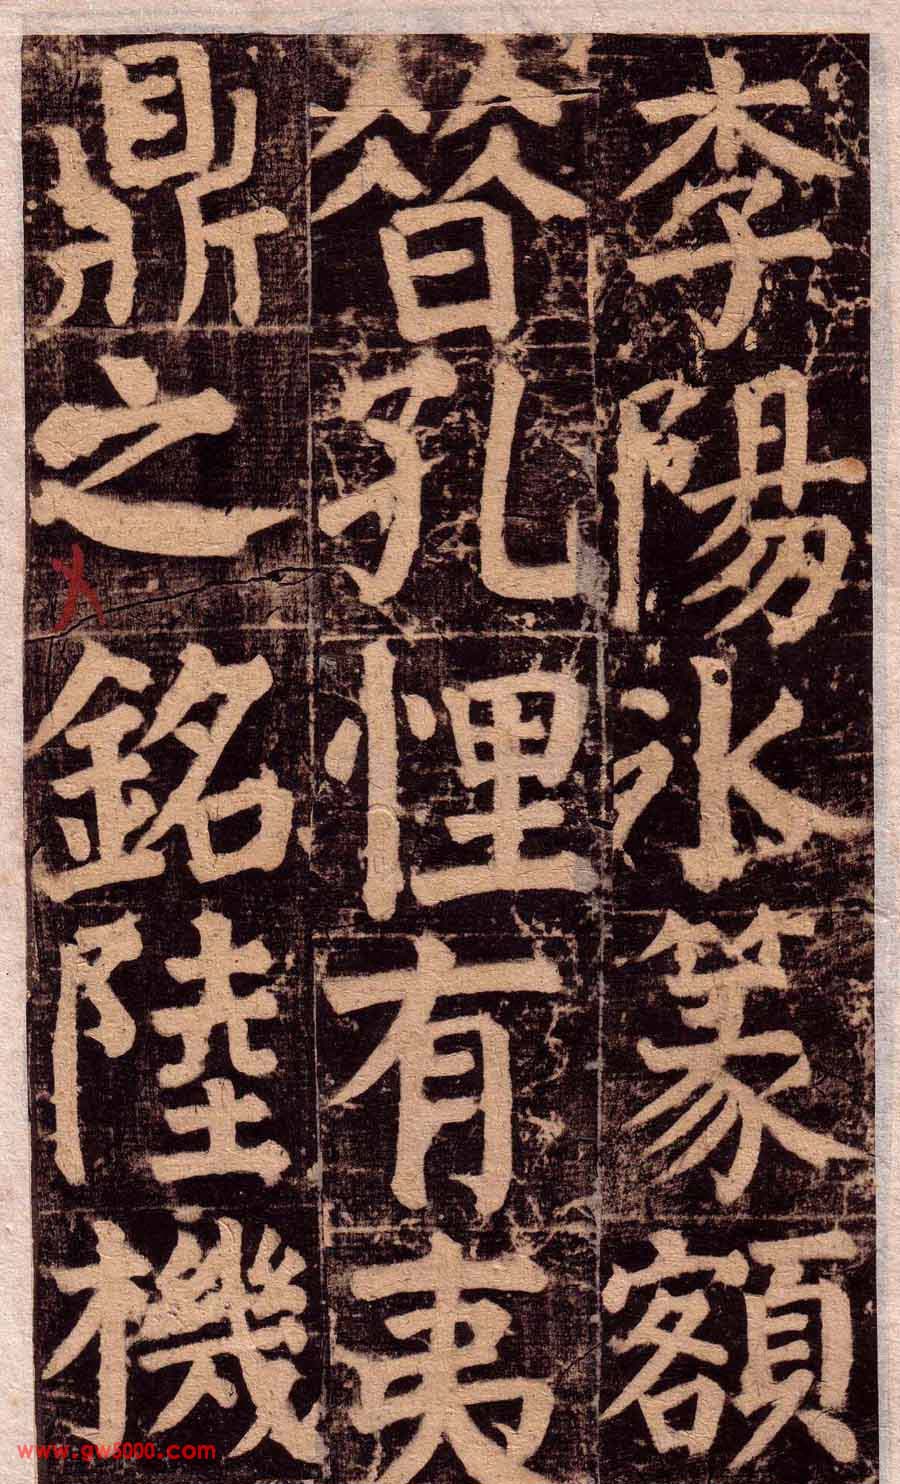 李陽冰篆額
昔孔悝有夷
鼎之銘陸機
www.gw5000.com